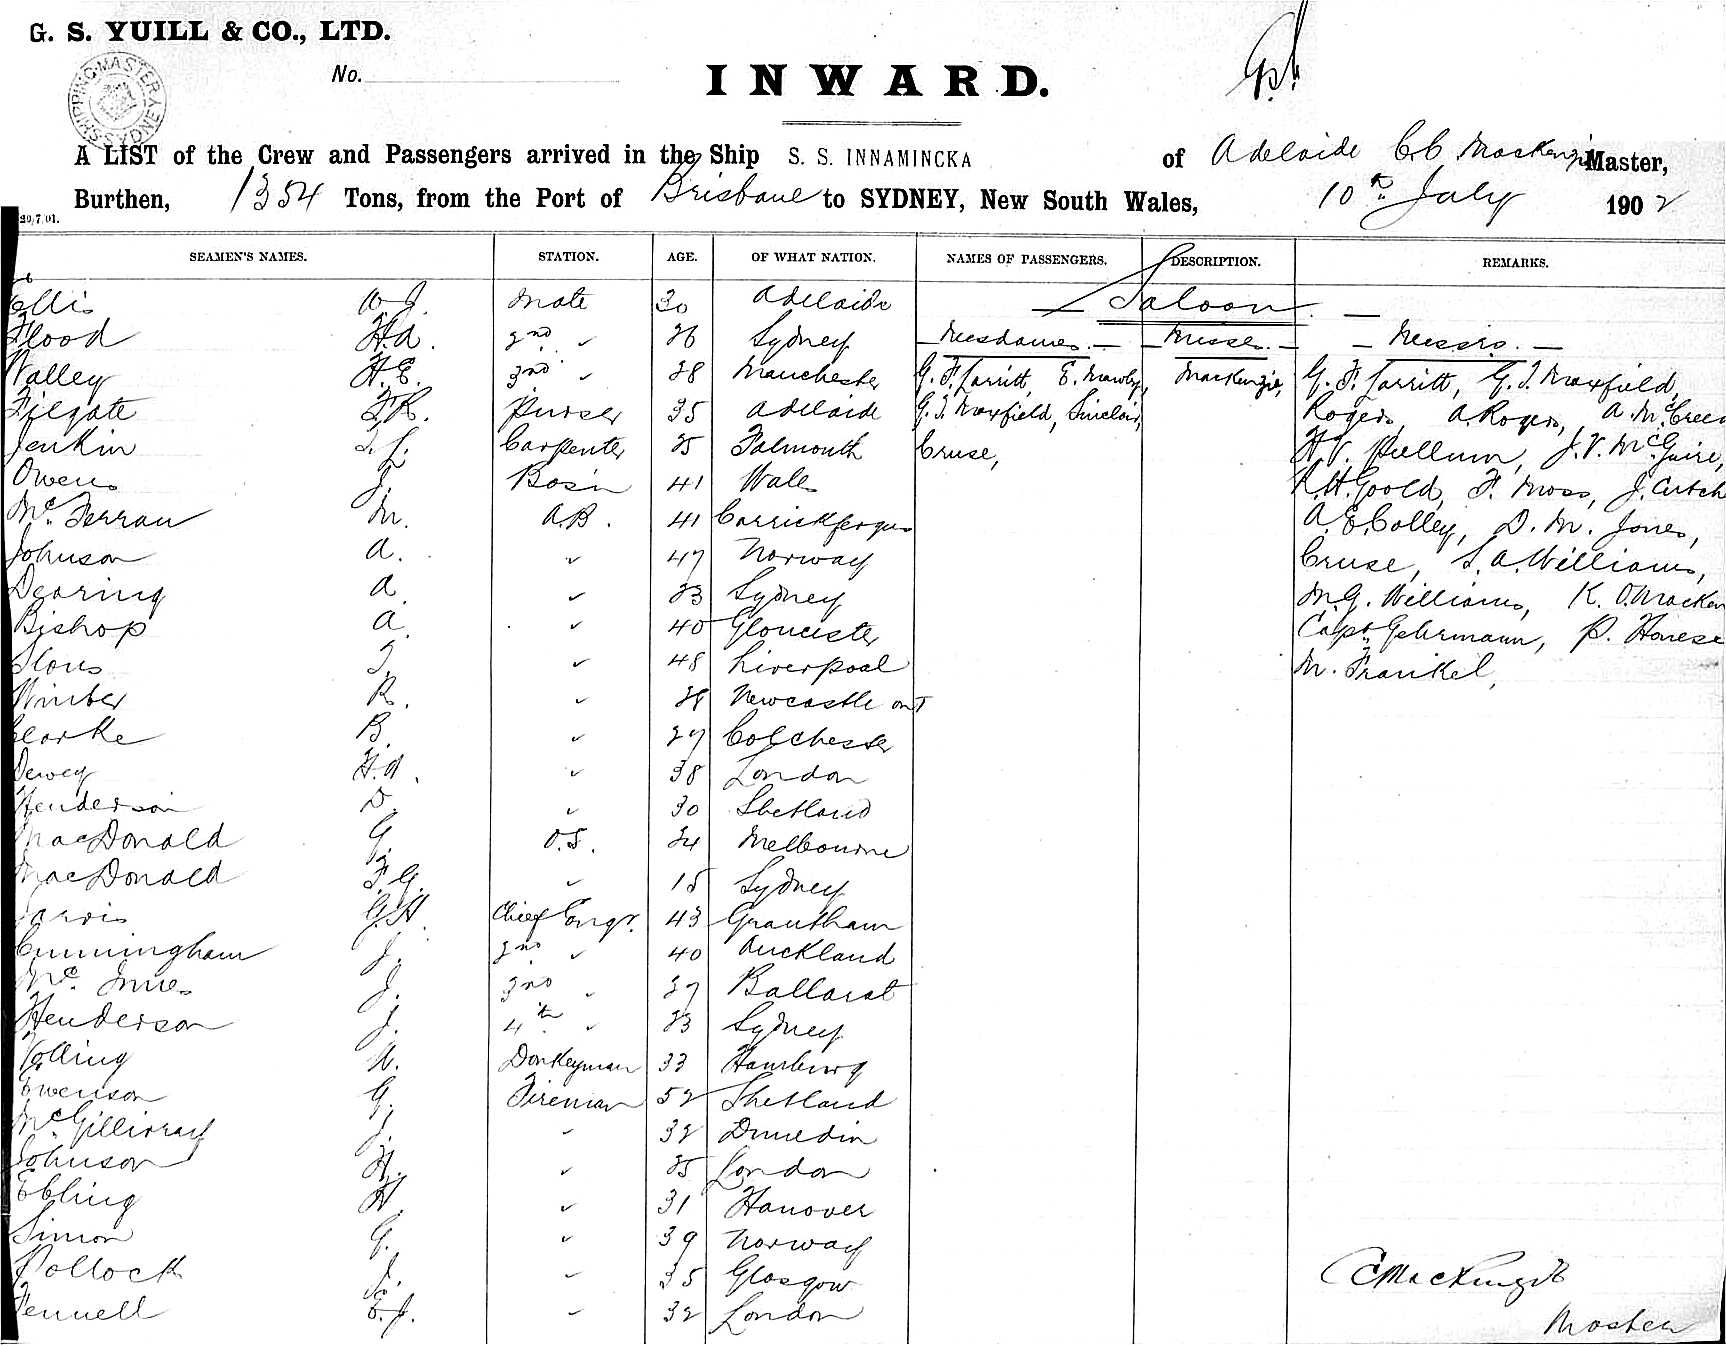 G. S. YUILL & CO., LTD.
No.
SHIPPING MASTER SYDNEY
INWARD.
A LIST of the Crew and Passengers arrived in the Ship S. S. INNAMINCKA of Adelaide C.C. Mackenzie Master,
Burthen, 1354 Tons, from the Port of Brisbane to SYDNEY, New South Wales, 10th July 1902
20,7,01.
SEAMEN'S NAMES. STATION. AGE. OF WHAT NATION. NAMES OF PASSENGERS. DESCRIPTION. REMARKS.
Ellis W.J. Mate 30 Adelaide — Saloon. —
Flood H.A. 2nd " 26 Sydney — Mesdames. — — Misses. — — Messrs. —
Walley H.E. 3rd " 28 Manchester G. F. Jarritt, E. Mawby, Mackenzie, G. F. Jarritt, G. J. Maxfield,
Filgate F.R. Purser 35 Adelaide G. J. Maxfield, Sinclair, Rogers, A. Rogers, A. McCreed
Jenkin Carpenter 25 Falmouth Cruse, H. V. Pullum, J. V. McGuire,
Owens J. Bosn 41 Wales R. H. Goold, F. Moss, J. Cutch
McFerran M. A.B. 41 Carrickfergus A. E. Colley, D. M. Jones,
Johnson A. " 47 Norway Cruse, S. A. Williams,
Dearing A " 23 Sydney M. G. Williams, K. O. Macken
Bishop A. " 40 Gloucester Capt. Gehrmann, P.
T. " 48 Liverpool M. Frankel,
Winber R. " 28 Newcastle on T
Clarke B. " 27 Colchester
Dewey H.A. " 38 London
Henderson D. " 30 Shetland
MacDonald G. O.S. 24 Melbourne
MacDonald F.G. " 15 Sydney
Jarvis G.H. Chief Engr. 43 Grantham
Cunningham J. 2nd " 40 Auckland
McInnes J. 3rd " 27 Ballarat
Henderson J. 4th " 23 Sydney
Kolling W. Donkeyman 33 Hamburg
Ewenson G. Fireman 52 Shetland
McGillivray J. " 32 Dunedin
Johnson H. " 25 London
Ebling H. " 31 Hanover
Simon G. " 39 Norway
Pollock J. " 35 Glasgow
Fennell E.J. " 32 London
C Mackenzie
Master